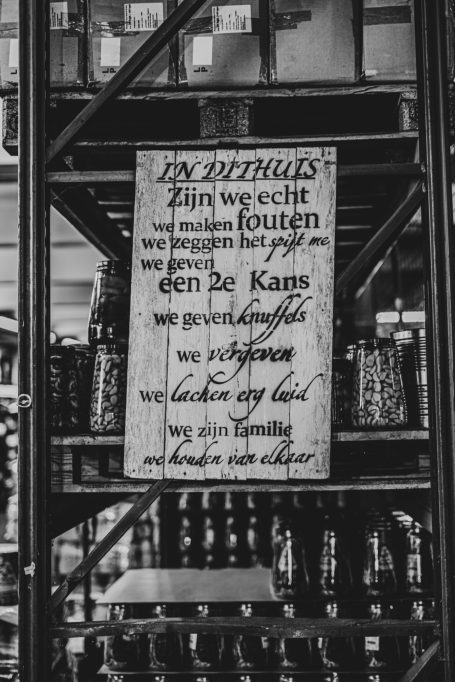 IN DIT HUIS
Zijn we echt
we maken fouten
we zeggen het spijt me
we geven
een 2e Kans
we geven knuffels
we vergeven
we lachen erg luid
we zijn familie
we houden van elkaar